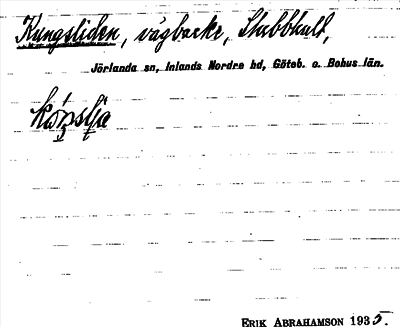 Kungsliden, vägbacke, Stabbhult,
Jörlanda sn, Inlands Nordre hd, Göteb. o. Bohus län.
ERIK ABRAHAMSON 1935.